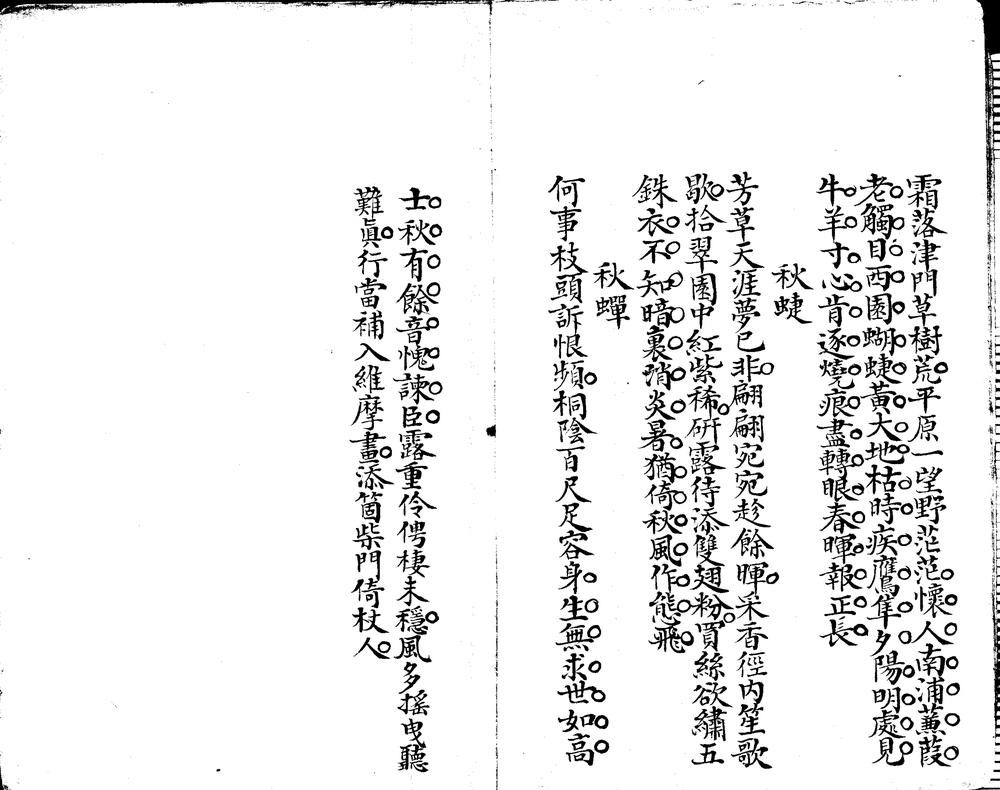 霜落津門草樹荒平原一望野茫茫懷人南浦蒹葭
老觸目西園蝴蜨黃大地枯時疾鷹隼夕陽明處見
牛羊寸心肯逐燒痕盡轉眼春暉報正長
秋蜨
芳草天涯夢已非翩翩宛宛趁餘暉采香徑內笙歌
歇拾翠園中紅紫稀研露待添雙翅粉買絲欲繡五
銖衣不知暗裏消炎暑猶倚秋風作態飛
秋蟬
何事枝頭訴恨頻桐陰百尺足容身生無求世如高
士秋有餘音愧諫臣露重伶俜棲未穩風多搖曳聽
難眞行當補入維摩畫添箇柴門倚杖人